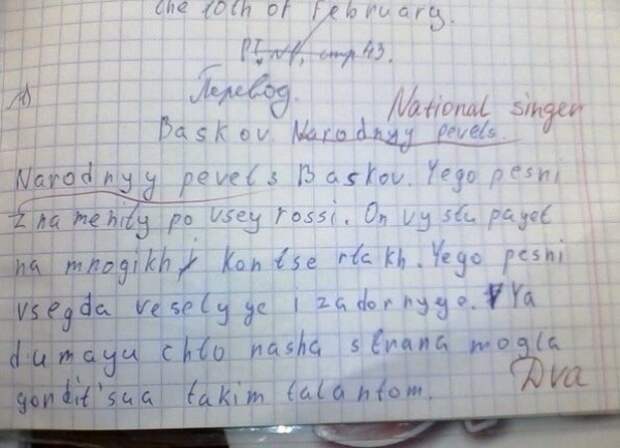 the 10th of February.
P1, №1, стр 43.
1)
Перевод.
National singer
Baskov. Narodnyy pevels.
Narodnyy pevels Baskov. Yego pesni
znamenity po vsey rossi. On vystupayet
na mnogikh kontsertakh. Yego pesni
vsegda veselyye i zadornyye. Ya
dumayu chto nasha strana mogla
gordit'sua takim talantom.
Dva